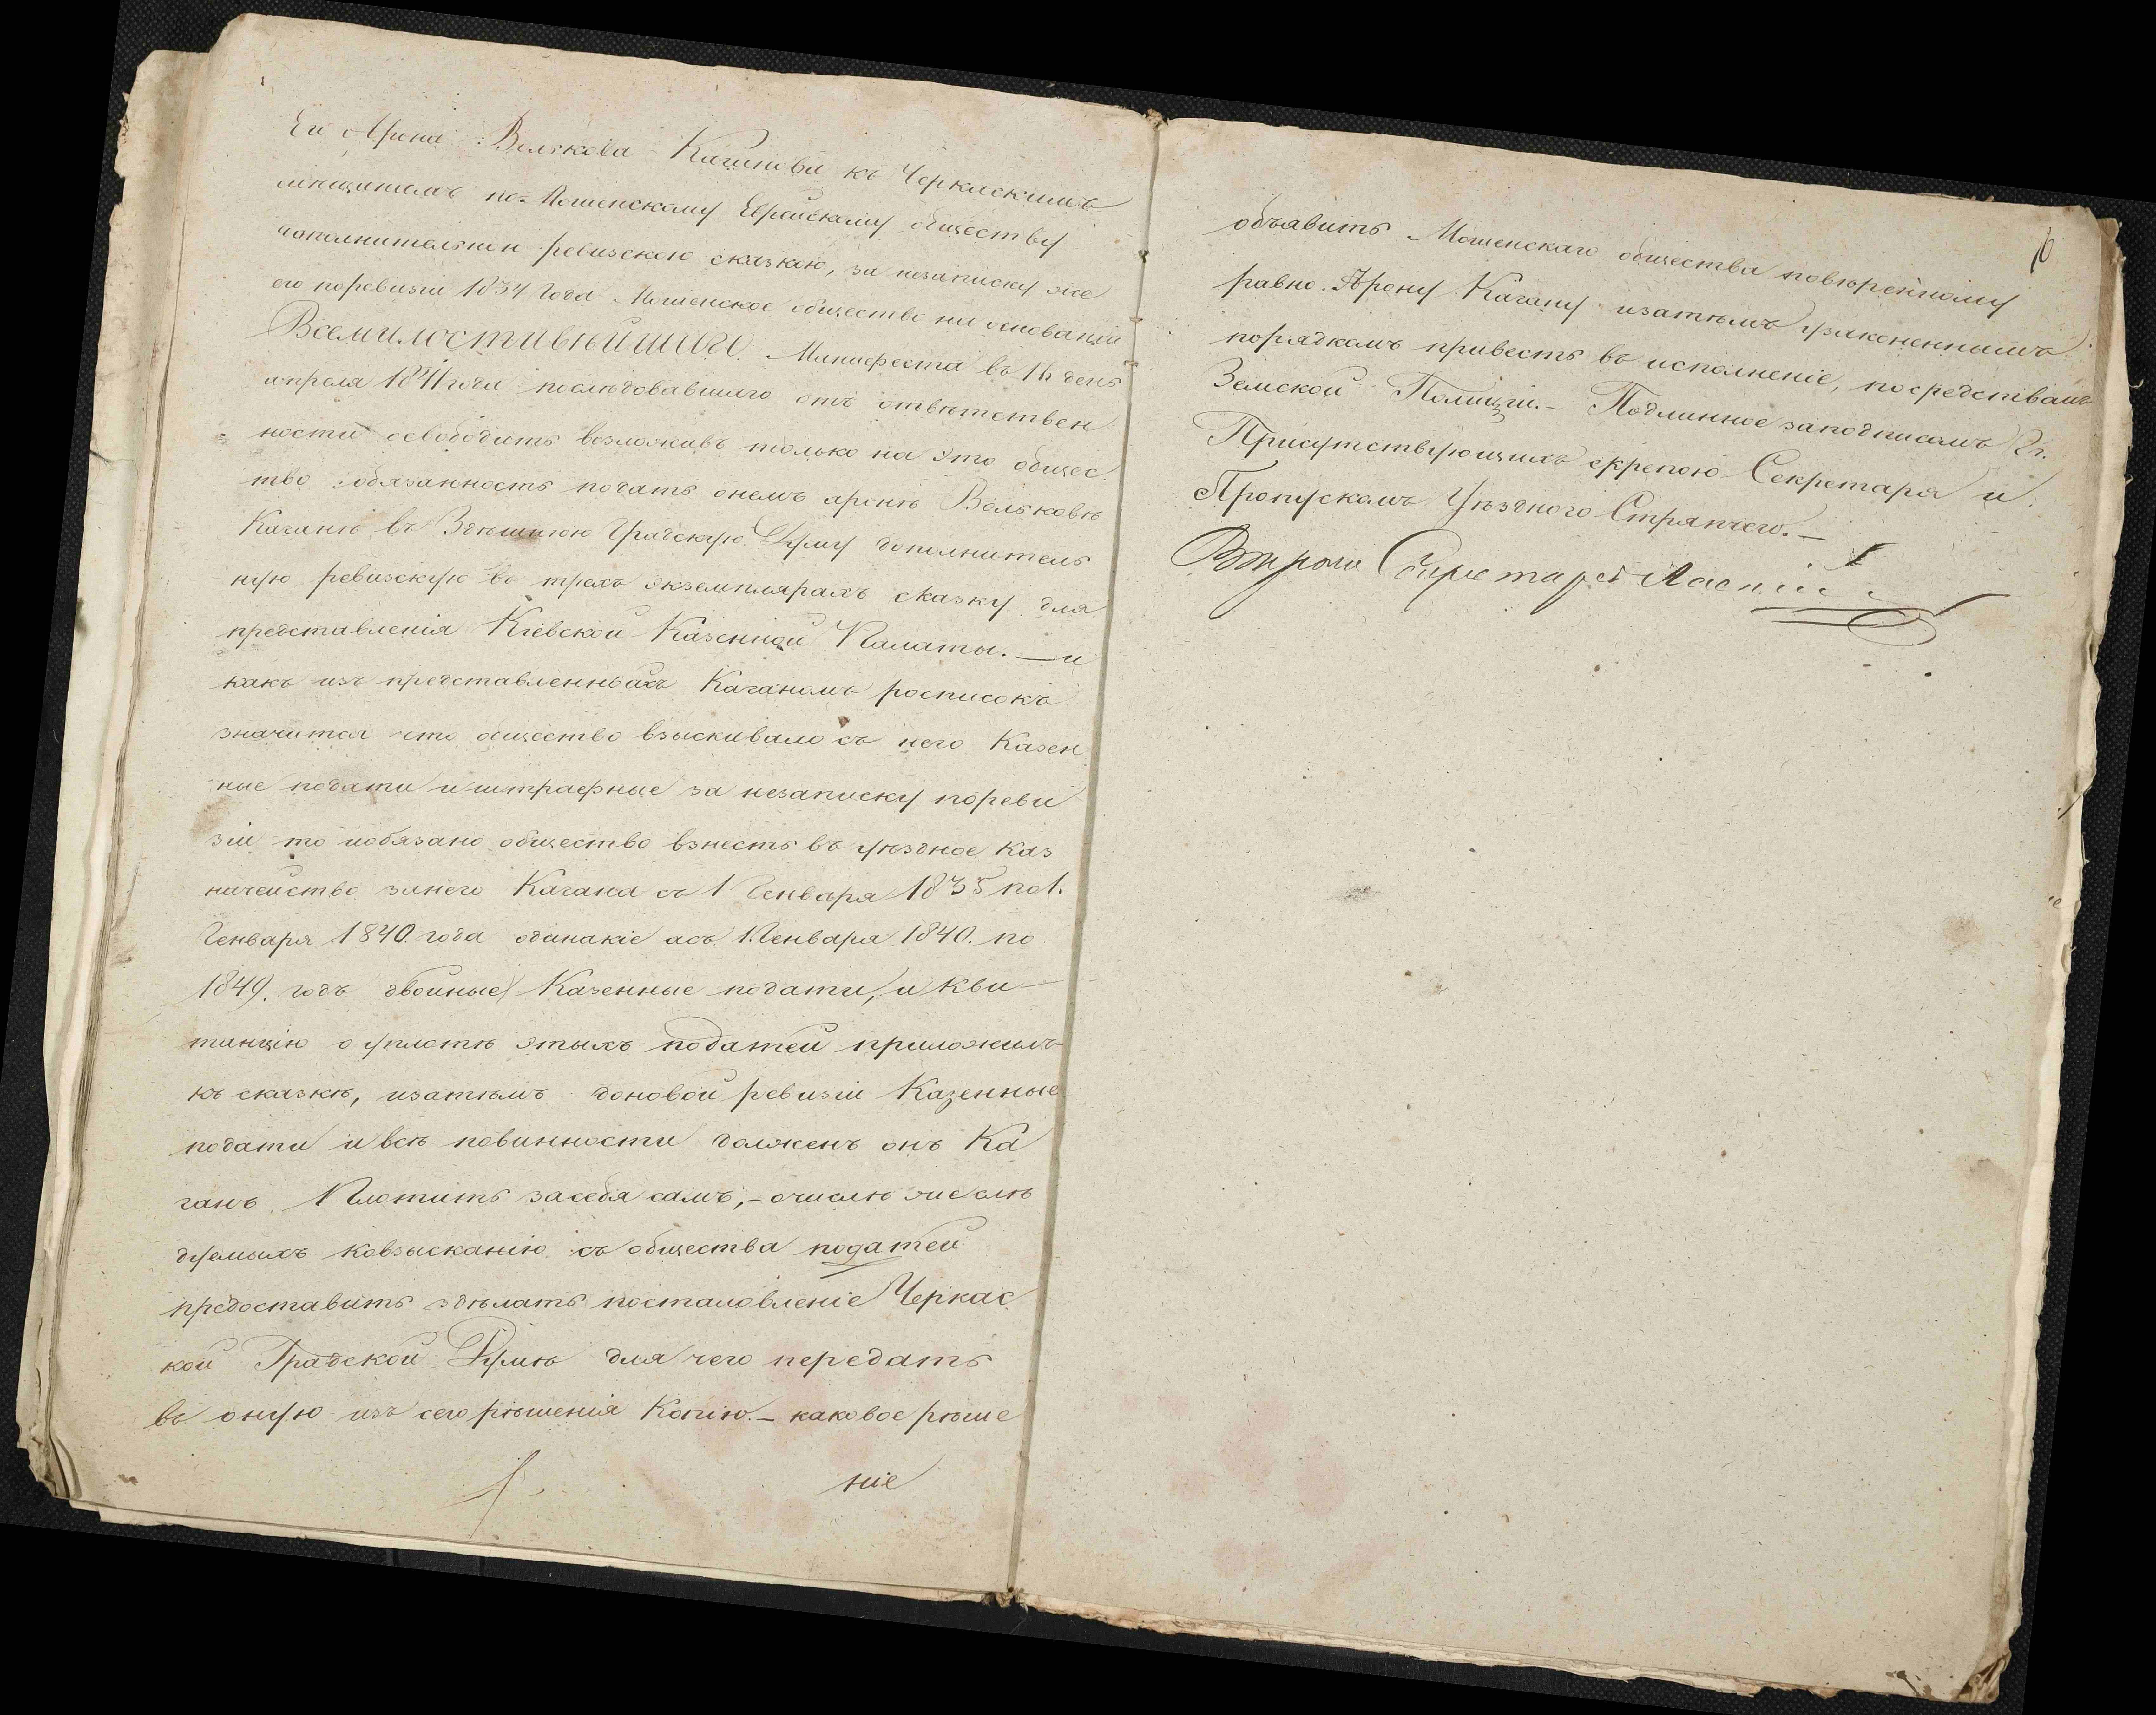 Ея Арона Волькова Каганова къ Черкаскимъ
мещанамъ по Мошенскому Еврейскому обществу
дополнительною ревизскою сказкою, за незаписку же
его поревизіи 1834 года Мошенское общество на основаніи
Всемилостивѣйшаго Манифеста въ 16 день
апреля 1841 года последовавшаго отъ ответствен
ности освободить возложивъ только на это общес
тво обязанность подать онемъ аронѣ Вольковѣ
Каганѣ въ Здѣшнюю Градскую Думу дополнитель
ную ревизскую въ трехъ экземплярахъ сказку для
представленія Кіевской Казенной Палаты. — и
какъ изъ представленныхъ Каганомъ росписокъ
значится что общество взыскивало съ него Казен
ные подати и штрафные за незаписку пореви
зіи то иобязано общество взнесть въ уѣздное каз
начейство занего Кагана съ 1 Генваря 1835 по 1.
Генваря 1840. года одинакіе асъ 1. Генваря 1840. по
1849. годъ двойные Казенные подати, и кви
танцію о уплотѣ этыхъ податей приложилъ
къ сказкѣ, изатѣмъ доновой ревизіи Казенные
подати ивсѣ повинности долженъ онъ Ка
ганъ Платить засебя самъ, - очислѣ же слѣ
дуемыхъ ковзысканію съ общества податей
предоставить здѣлать постановленіе Черкас
кой Градской Думѣ для чего передать
въ оную изъ сего рѣшенія Копію. - каковое рѣше
ніе
16
объявить Мошенскаго общества повѣренному
равно. Арону Кагану изатѣмъ узаконеннымъ
порядкомъ привесть въ исполненіе, посредствомъ
Земской Полиціи. - Подлинное заподписомъ Гг.
Присутствующихъ скрепою Секретаря и
Пропускомъ Уѣздного Стряпчего. -
Секретарь